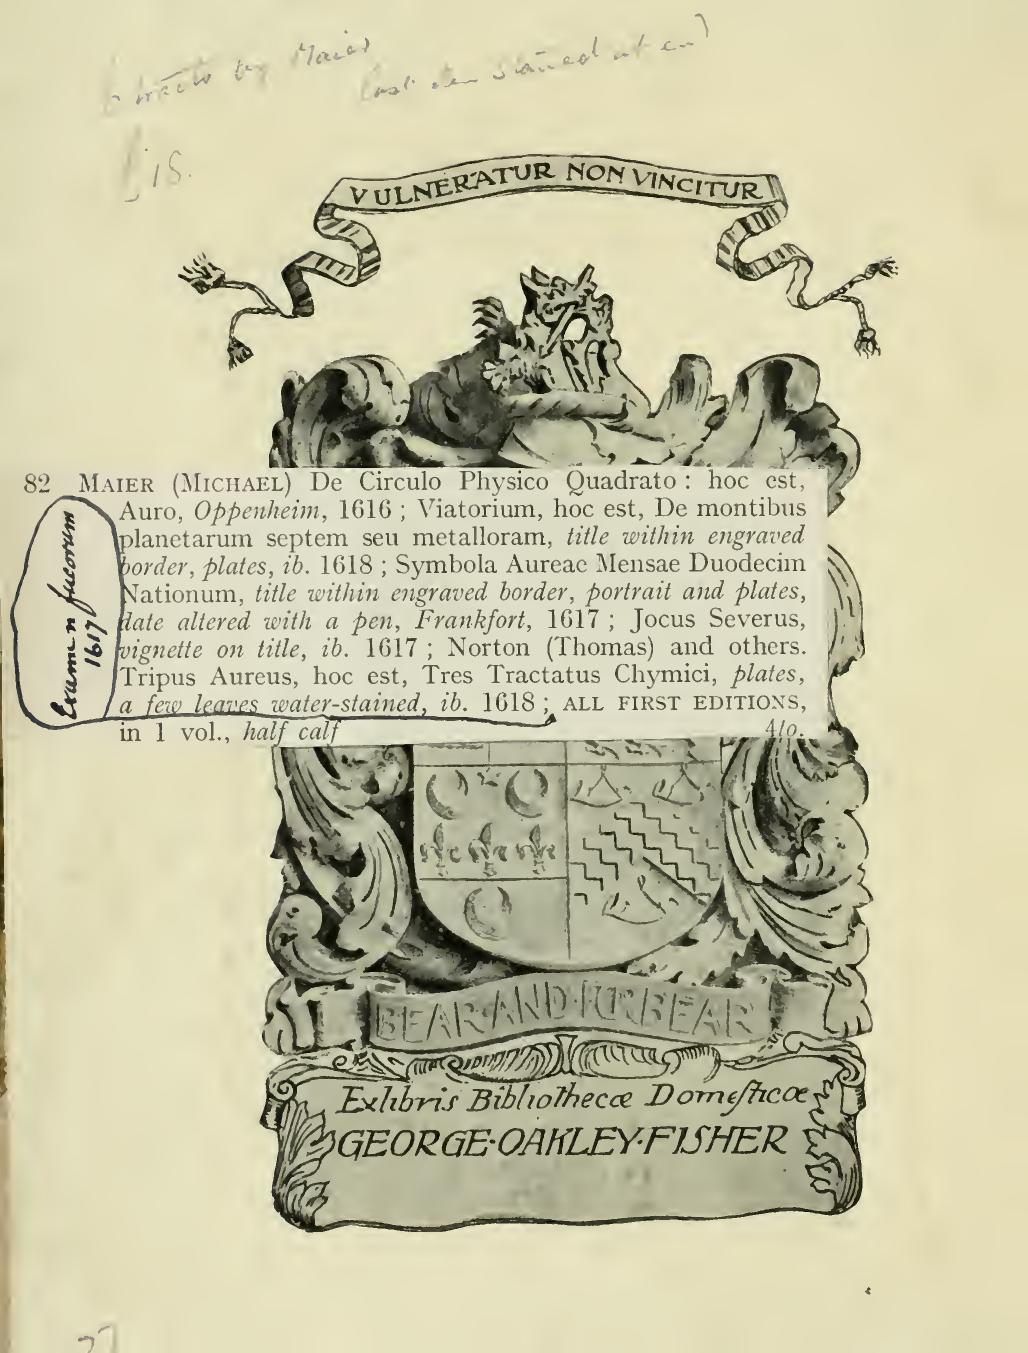 by Maier
last item stained at end
£18.
VULNERATUR NON VINCITUR
82 MAIER (MICHAEL) De Circulo Physico Quadrato : hoc est,
Auro, Oppenheim, 1616 ; Viatorium, hoc est, De montibus
planetarum septem seu metalloram, title within engraved
border, plates, ib. 1618 ; Symbola Aureae Mensae Duodecim
Nationum, title within engraved border, portrait and plates,
date altered with a pen, Frankfort, 1617 ; Jocus Severus,
vignette on title, ib. 1617 ; Norton (Thomas) and others.
Tripus Aureus, hoc est, Tres Tractatus Chymici, plates,
a few leaves water-stained, ib. 1618 ; ALL FIRST EDITIONS,
in 1 vol., half calf 4to.
Examen fucorum
1617
BEAR·AND·FORBEAR
Exlibris Bibliothecæ Domesticæ
GEORGE·OAKLEY·FISHER